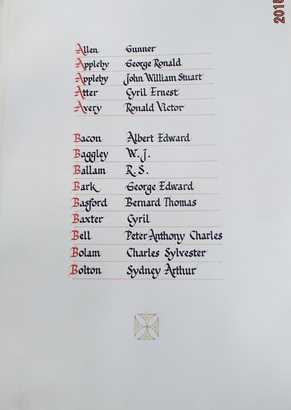 Allen Gunner
Appleby George Ronald
Appleby John William Stuart
Atter Cyril Ernest
Avery Ronald Victor
Bacon Albert Edward
Baggley W. J.
Ballam R. S.
Bark George Edward
Basford Bernard Thomas
Baxter Cyril
Bell Peter Anthony Charles
Bolam Charles Sylvester
Bolton Sydney Arthur